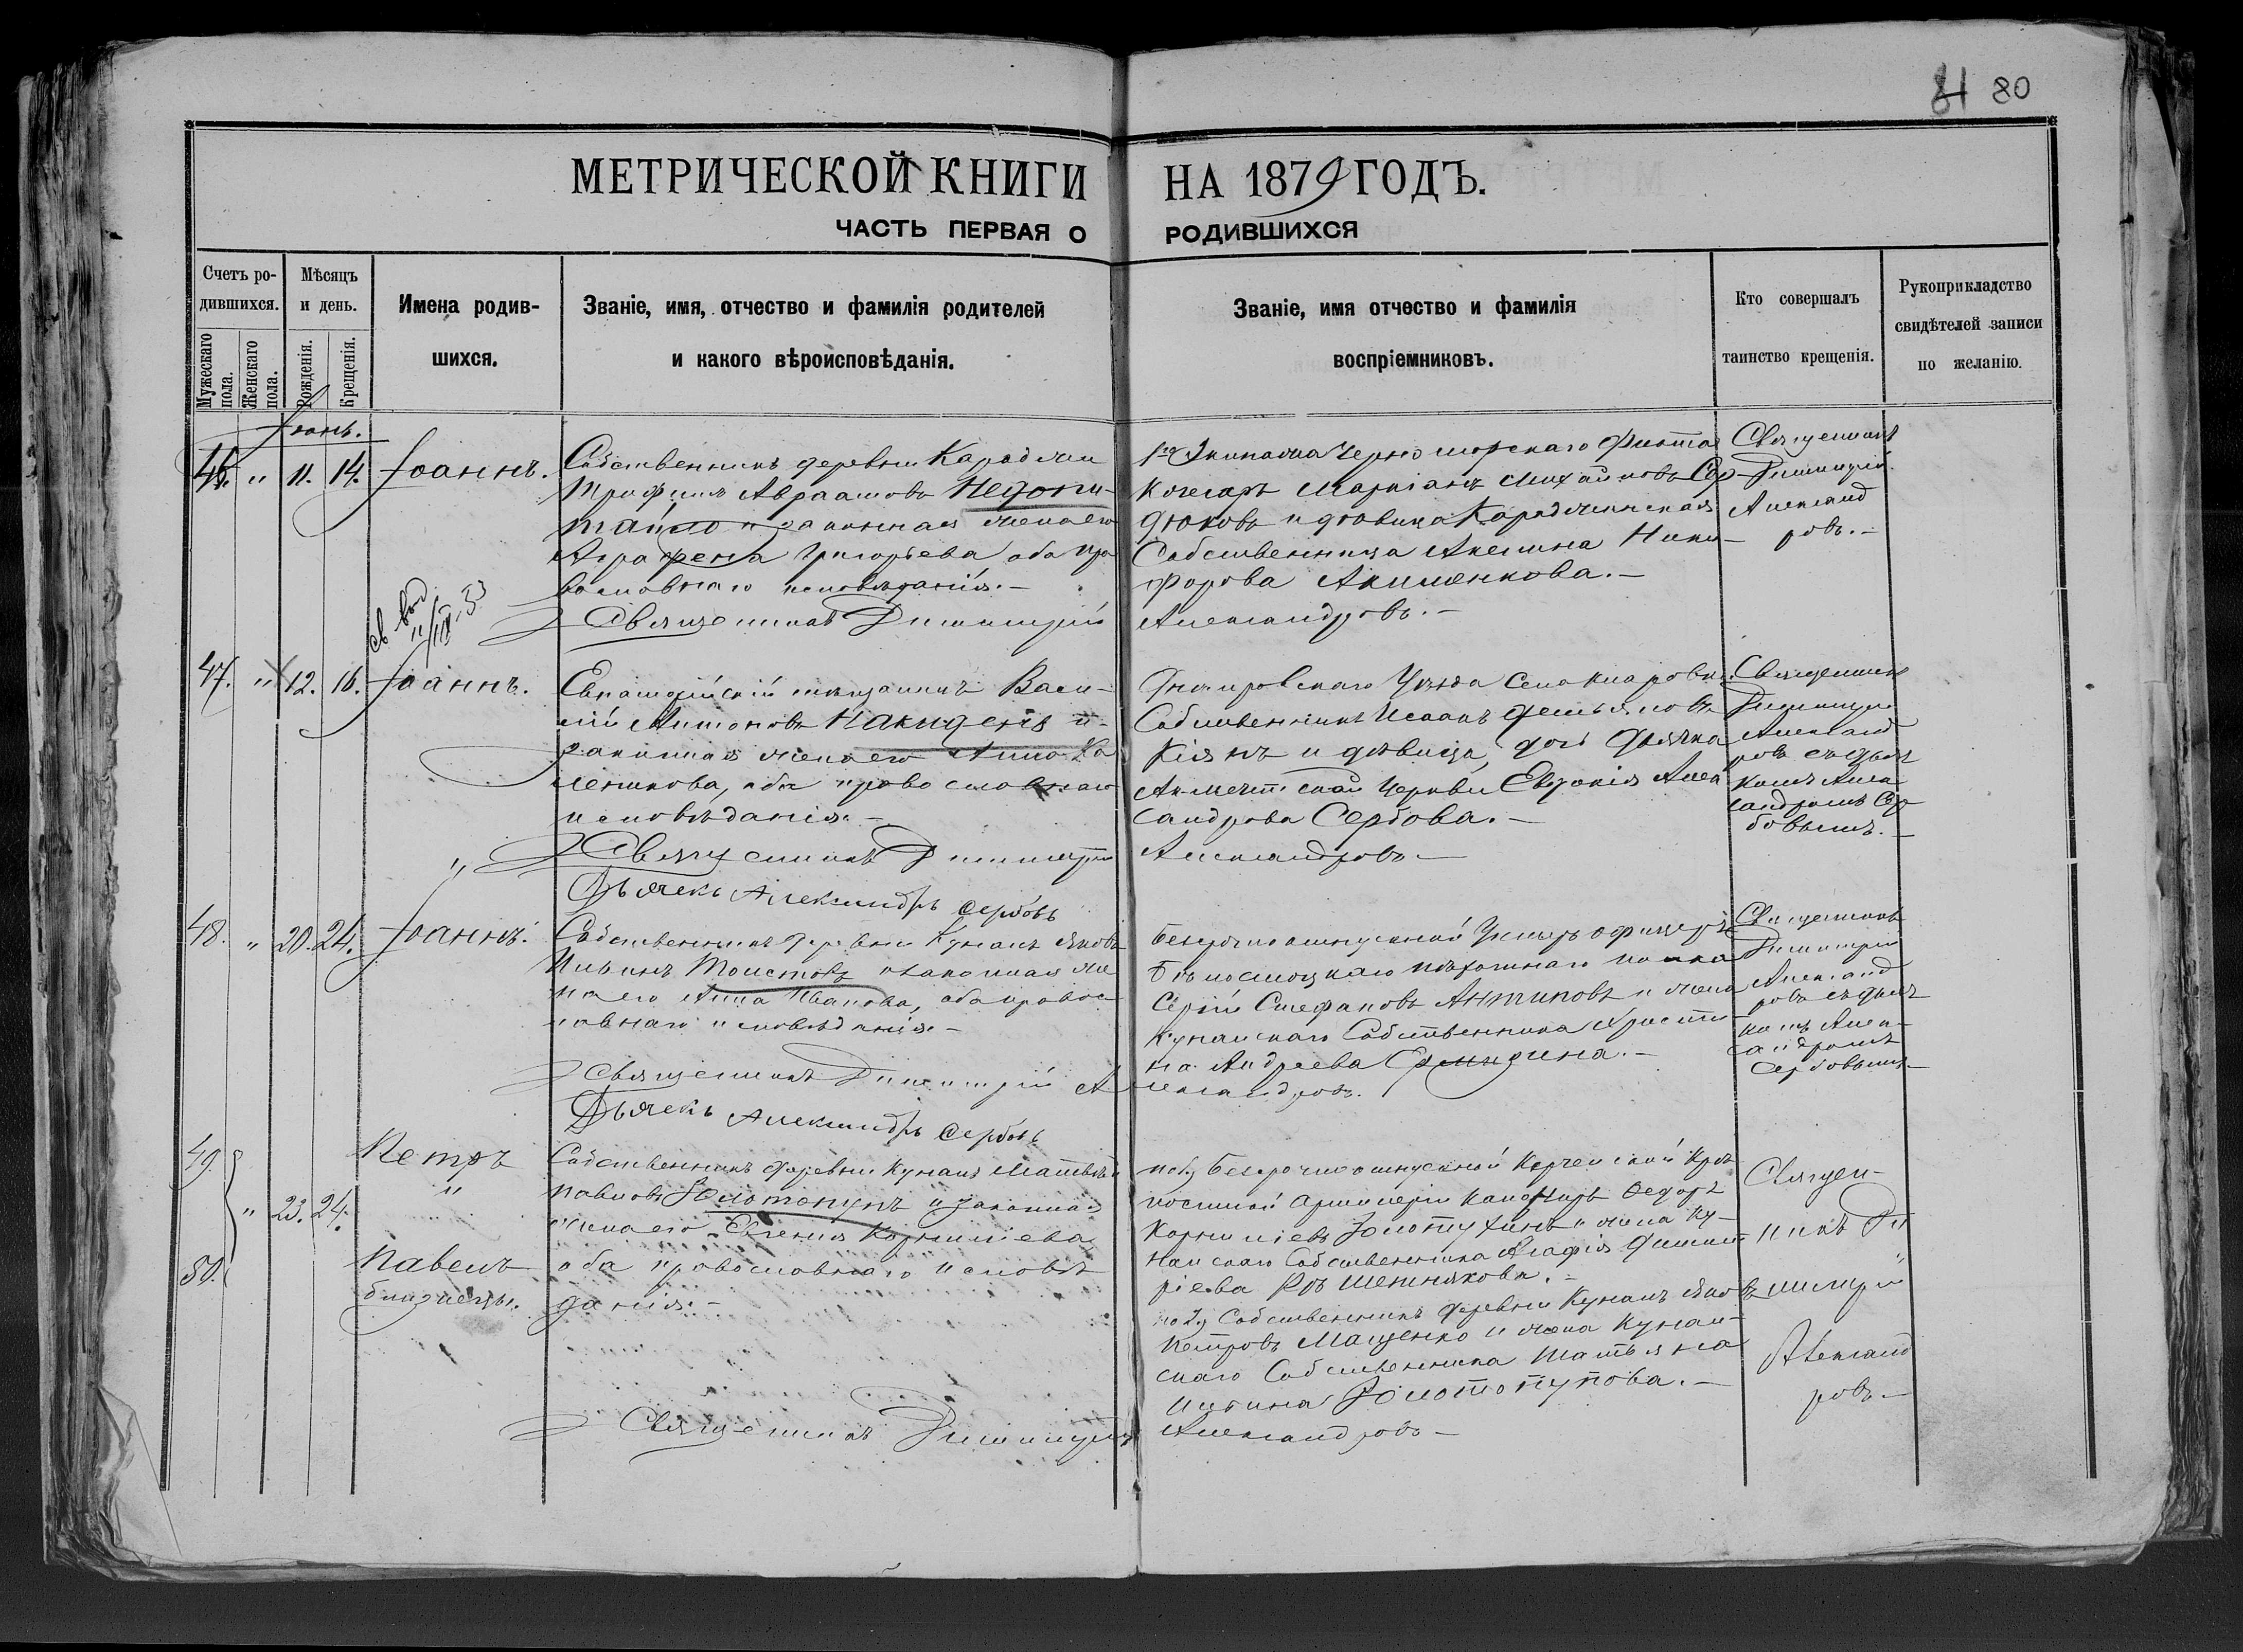 81 80
МЕТРИЧЕСКОЙ КНИГИ НА 1879 ГОДЪ.
ЧАСТЬ ПЕРВАЯ О РОДИВШИХСЯ
Счетъ ро-
дившихся.
Мужескаго пола.
Женскаго пола.
Мѣсяцъ
и день.
Рожденія.
Крещенія.
Имена родив-
шихся.
Званіе, имя, отчество и фамилія родителей
и какого вѣроисповѣданія.
Званіе, имя отчество и фамилія
воспріемниковъ.
Кто совершалъ
таинство крещенія.
Рукоприкладство
свидѣтелей записи
по желанію.
Іюнь.
46. " 11. 14. Іоаннъ.
Собственникъ деревни
Трифилъ Авраамовъ Недопи-
тайло и законная жена его
Аграфена Григорьева, оба пра
вославнаго исповѣданія.-
Священникъ Димитрій
Экипажа Черноморскаго Флота
Кочегаръ Маркіанъ Михайловъ Сер-
дюковъ и дѣвица
Собственница Акелина Ники-
форова Акименкова.-
Александровъ.-
Священникъ
Димитрій
Александ
ровъ.-
47. " 12. 16. Іоаннъ.
Евпаторійскій мѣщанинъ Васи-
лій Антоновъ и
законная жена его Анна
оба православнаго
исповѣданія.-
Священникъ Димитрій
Дьячекъ Александръ Сербовъ
Днѣпровскаго Уѣзда Села
Собственникъ Исаакъ Демьяновъ
и дѣвица, дочь Дьячка
Ак-Мечетской Церкви Евдокія Алек
сандрова Сербова.-
Александровъ-
Священникъ
Димитрій
Александ
ровъ съ дьяч
комъ Алек
сандромъ Сер
бовымъ.-
48. " 20. 24. Іоаннъ.
Собственникъ деревни Кунанъ Яковъ
Ильинъ Толстовъ и законная же
на его Анна Иванова, оба правос-
лавнаго исповѣданія.-
Священникъ Димитрій А
Дьячекъ Александръ Сербовъ
Безсрочноотпускной Унтеръ офицеръ
Бѣлостоцкаго пѣхотнаго полка
Сергій Стефановъ Антиповъ и жена
Кунанскаго Собственника Христи-
на Андреева
лександровъ.
Священникъ
Димитрій
Александ
ровъ съ дьяч
комъ Алек-
сандромъ
Сербовымъ.-
49. Петръ
" 23. 24. "
50. Павелъ
близнецы.
Собственникъ деревни Кунанъ Матвѣй
Павловъ Золотопупъ и законная
жена его Евгенія Корниліева
оба православнаго исповѣ
данія.-
Священникъ Димитрій
по 1му Безсрочноотпускной Керченской Крѣ
постной Артиллеріи Канониръ Федоръ
Корниліевъ Золотухинъ и жена Ку-
нанскаго Собственника Агафія Димит
ріева
по 2му Собственникъ деревни Кунанъ Яковъ
Петровъ Мащенко и жена Кунан-
скаго Собственника Татьяна
Золотопупова.-
Александровъ-
Священ-
никъ Ди
митрій
Александ
ровъ.-